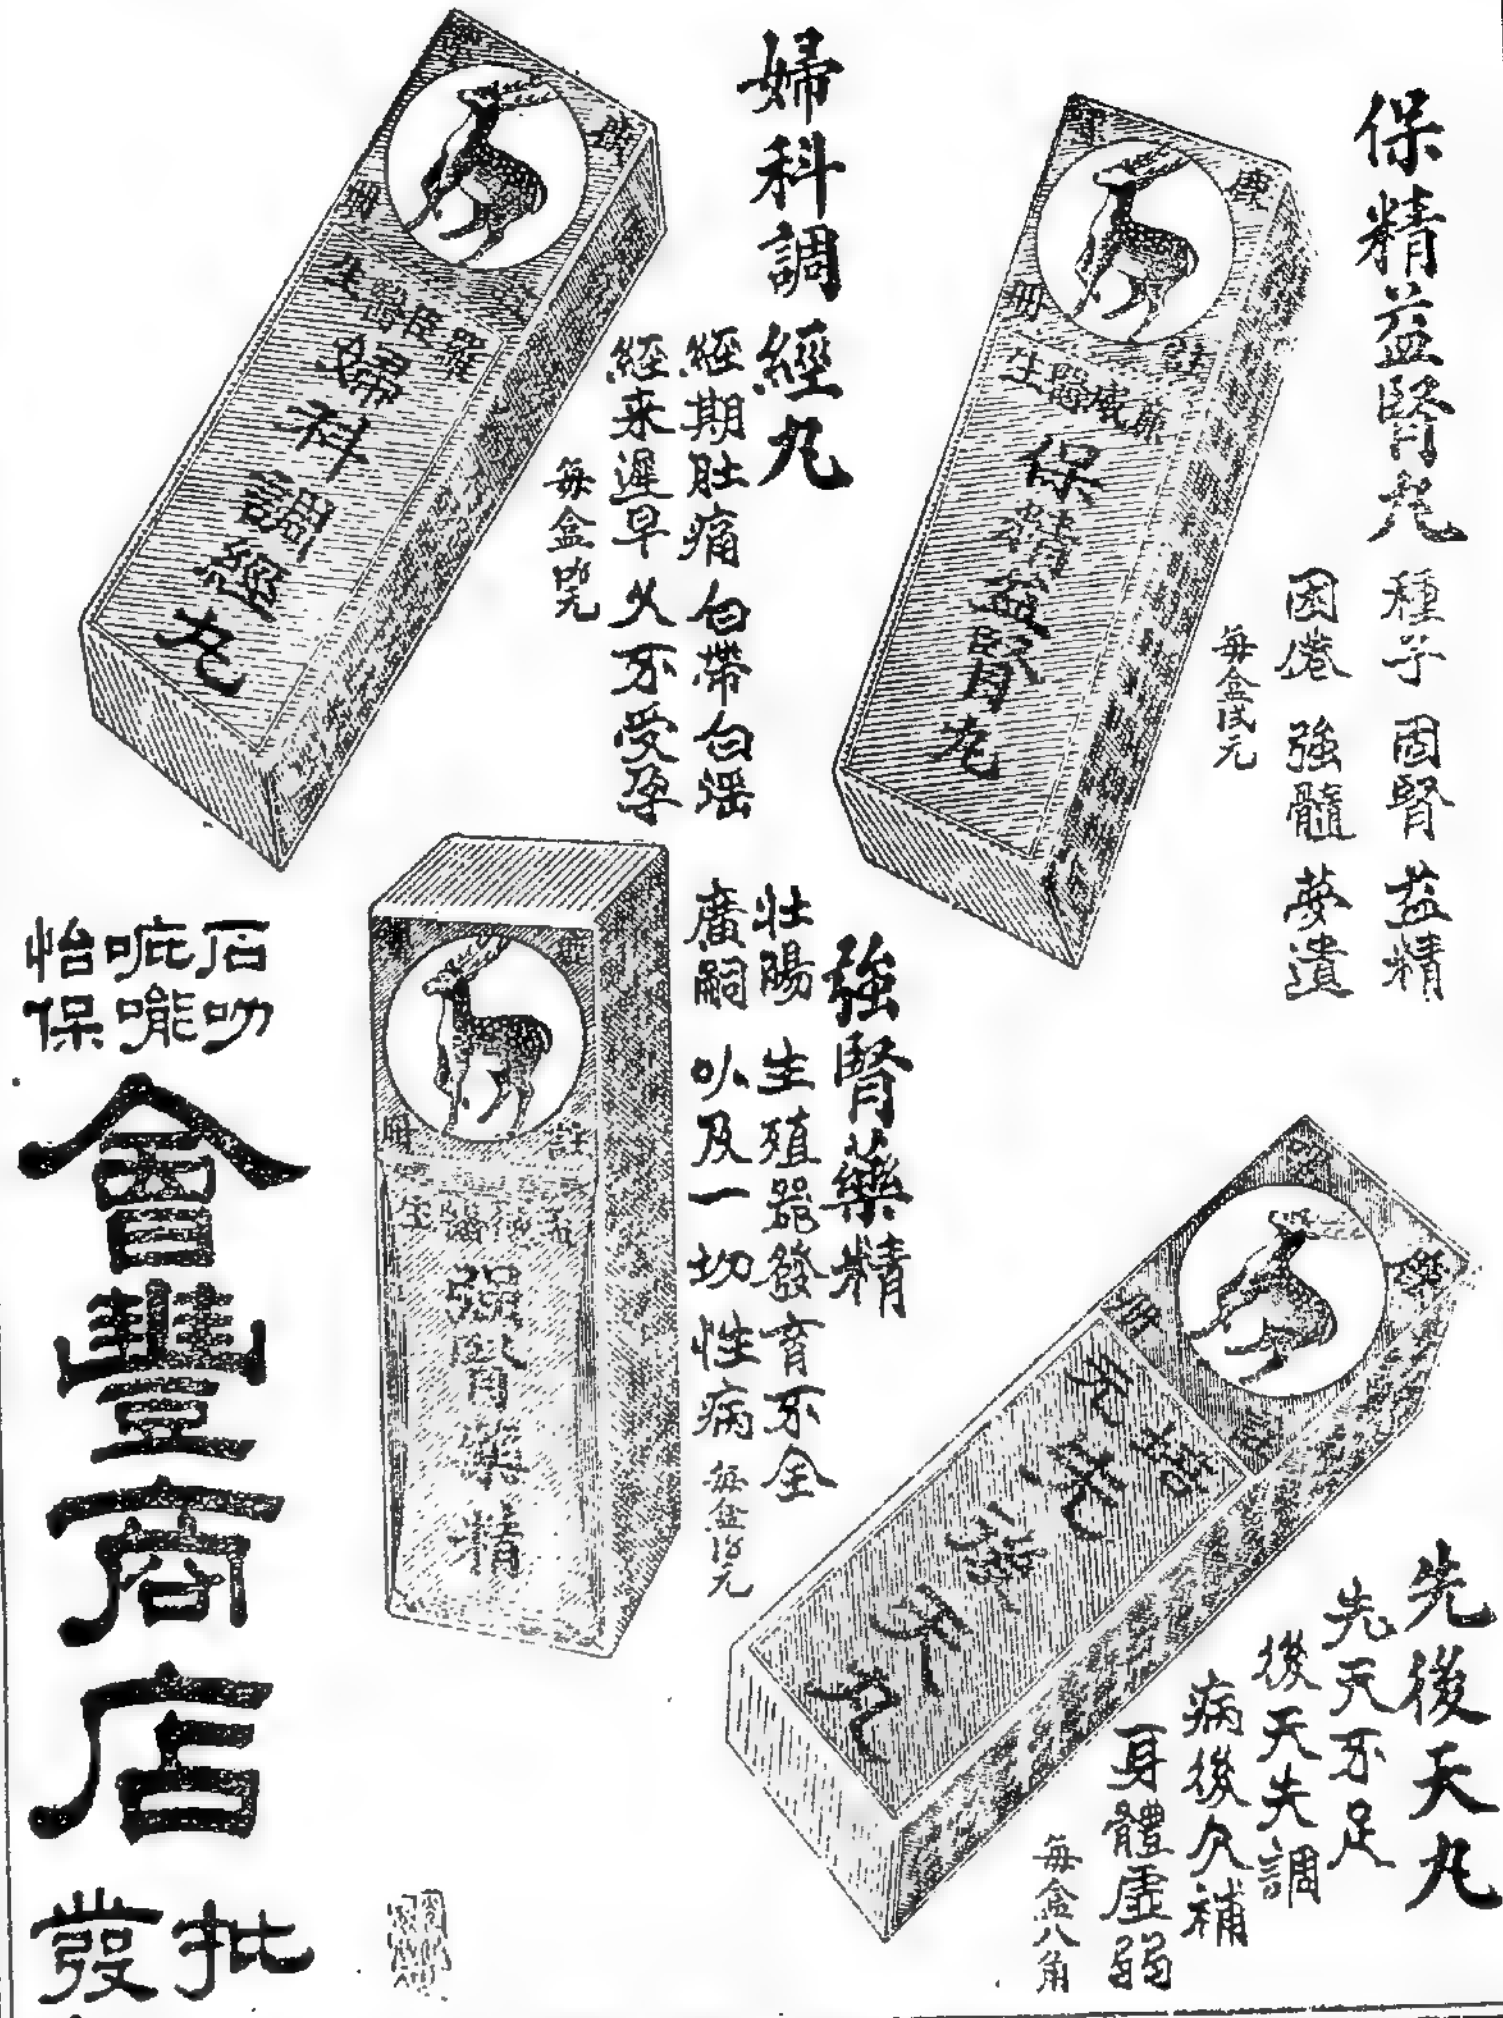 保精益腎丸
種子 固腎 益精
困倦 強髓 夢遺
每盒式元
保精益腎丸
註冊
婦科調經丸
經期肚痛 白帶白淫
經来遲早 久不受孕
每盒
婦科調經丸
強腎藥精
壯陽 生殖器發育不全
廣嗣 以及一切性病
每盒 元
註冊
強腎藥精
先後天丸
先天不足
後天失調
病後欠補
身體虛弱
每盒八角
石叻
吡嚨
怡保
會豐商店
批發